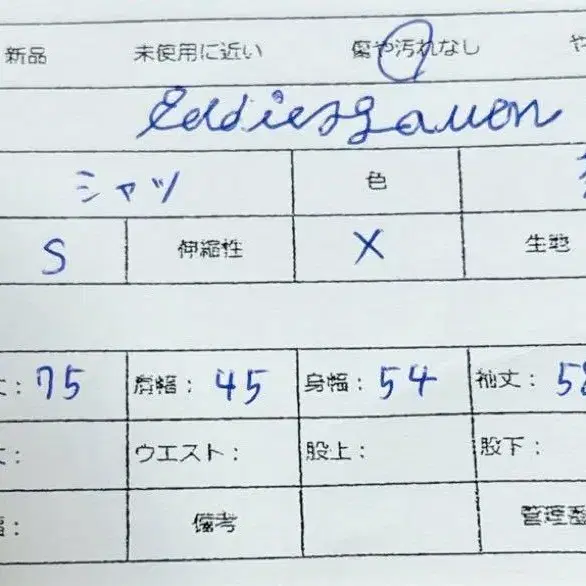 新品 未使用に近い 傷や汚れなし や
Eddiesgauon
シャツ 色
S 伸縮性 X 生地
丈：75 肩幅：45 身幅：54 袖丈：58
丈： ウエスト： 股上： 股下：
幅： 備考 管理番